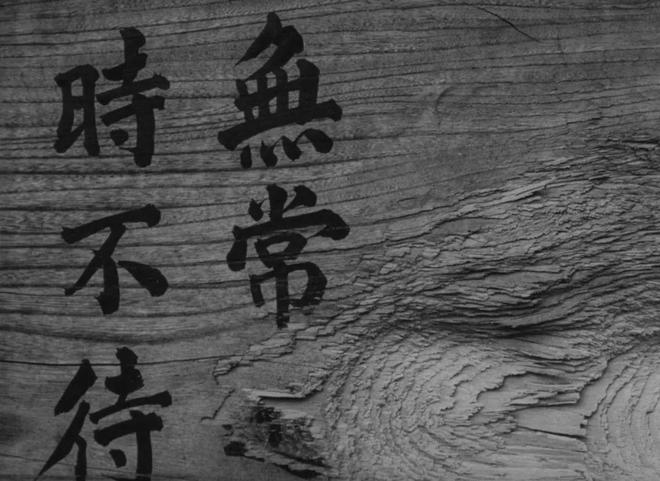 無常
時不待